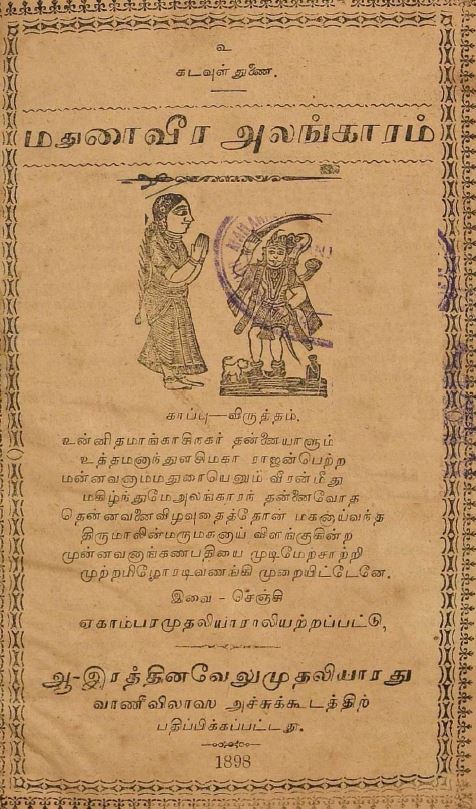 உ
கடவுள் துணை.
மதுரைவீர அலங்காரம்
காப்பு—விருத்தம்.
உன்னிதமாங்காசிநகர் தன்னையாளும்
உத்தமனாந்துளசிமகா ராஜன்பெற்ற
மன்னவனாமதுரையெனும் வீரன்மீது
மகிழ்ந்துமேஅலங்காரந் தன்னைவோத
தென்னவனைவிழவுதைத்தோன் மகனாய்வந்த
திருமாலின்மருமகனாய் விளங்குகின்ற
முன்னவனாங்கணபதியை முடிமேற்சாற்றி
முற்றபிழோரடிவணங்கி முறையிட்டேனே.
இவை - செஞ்சி
ஏகாம்பரமுதலியாராலியற்றப்பட்டு,
ஆ-இரத்தினவேலுமுதலியாரது
வாணீவிலாஸ அச்சுக்கூடத்திற்
பதிப்பிக்கப்பட்டது.
1898